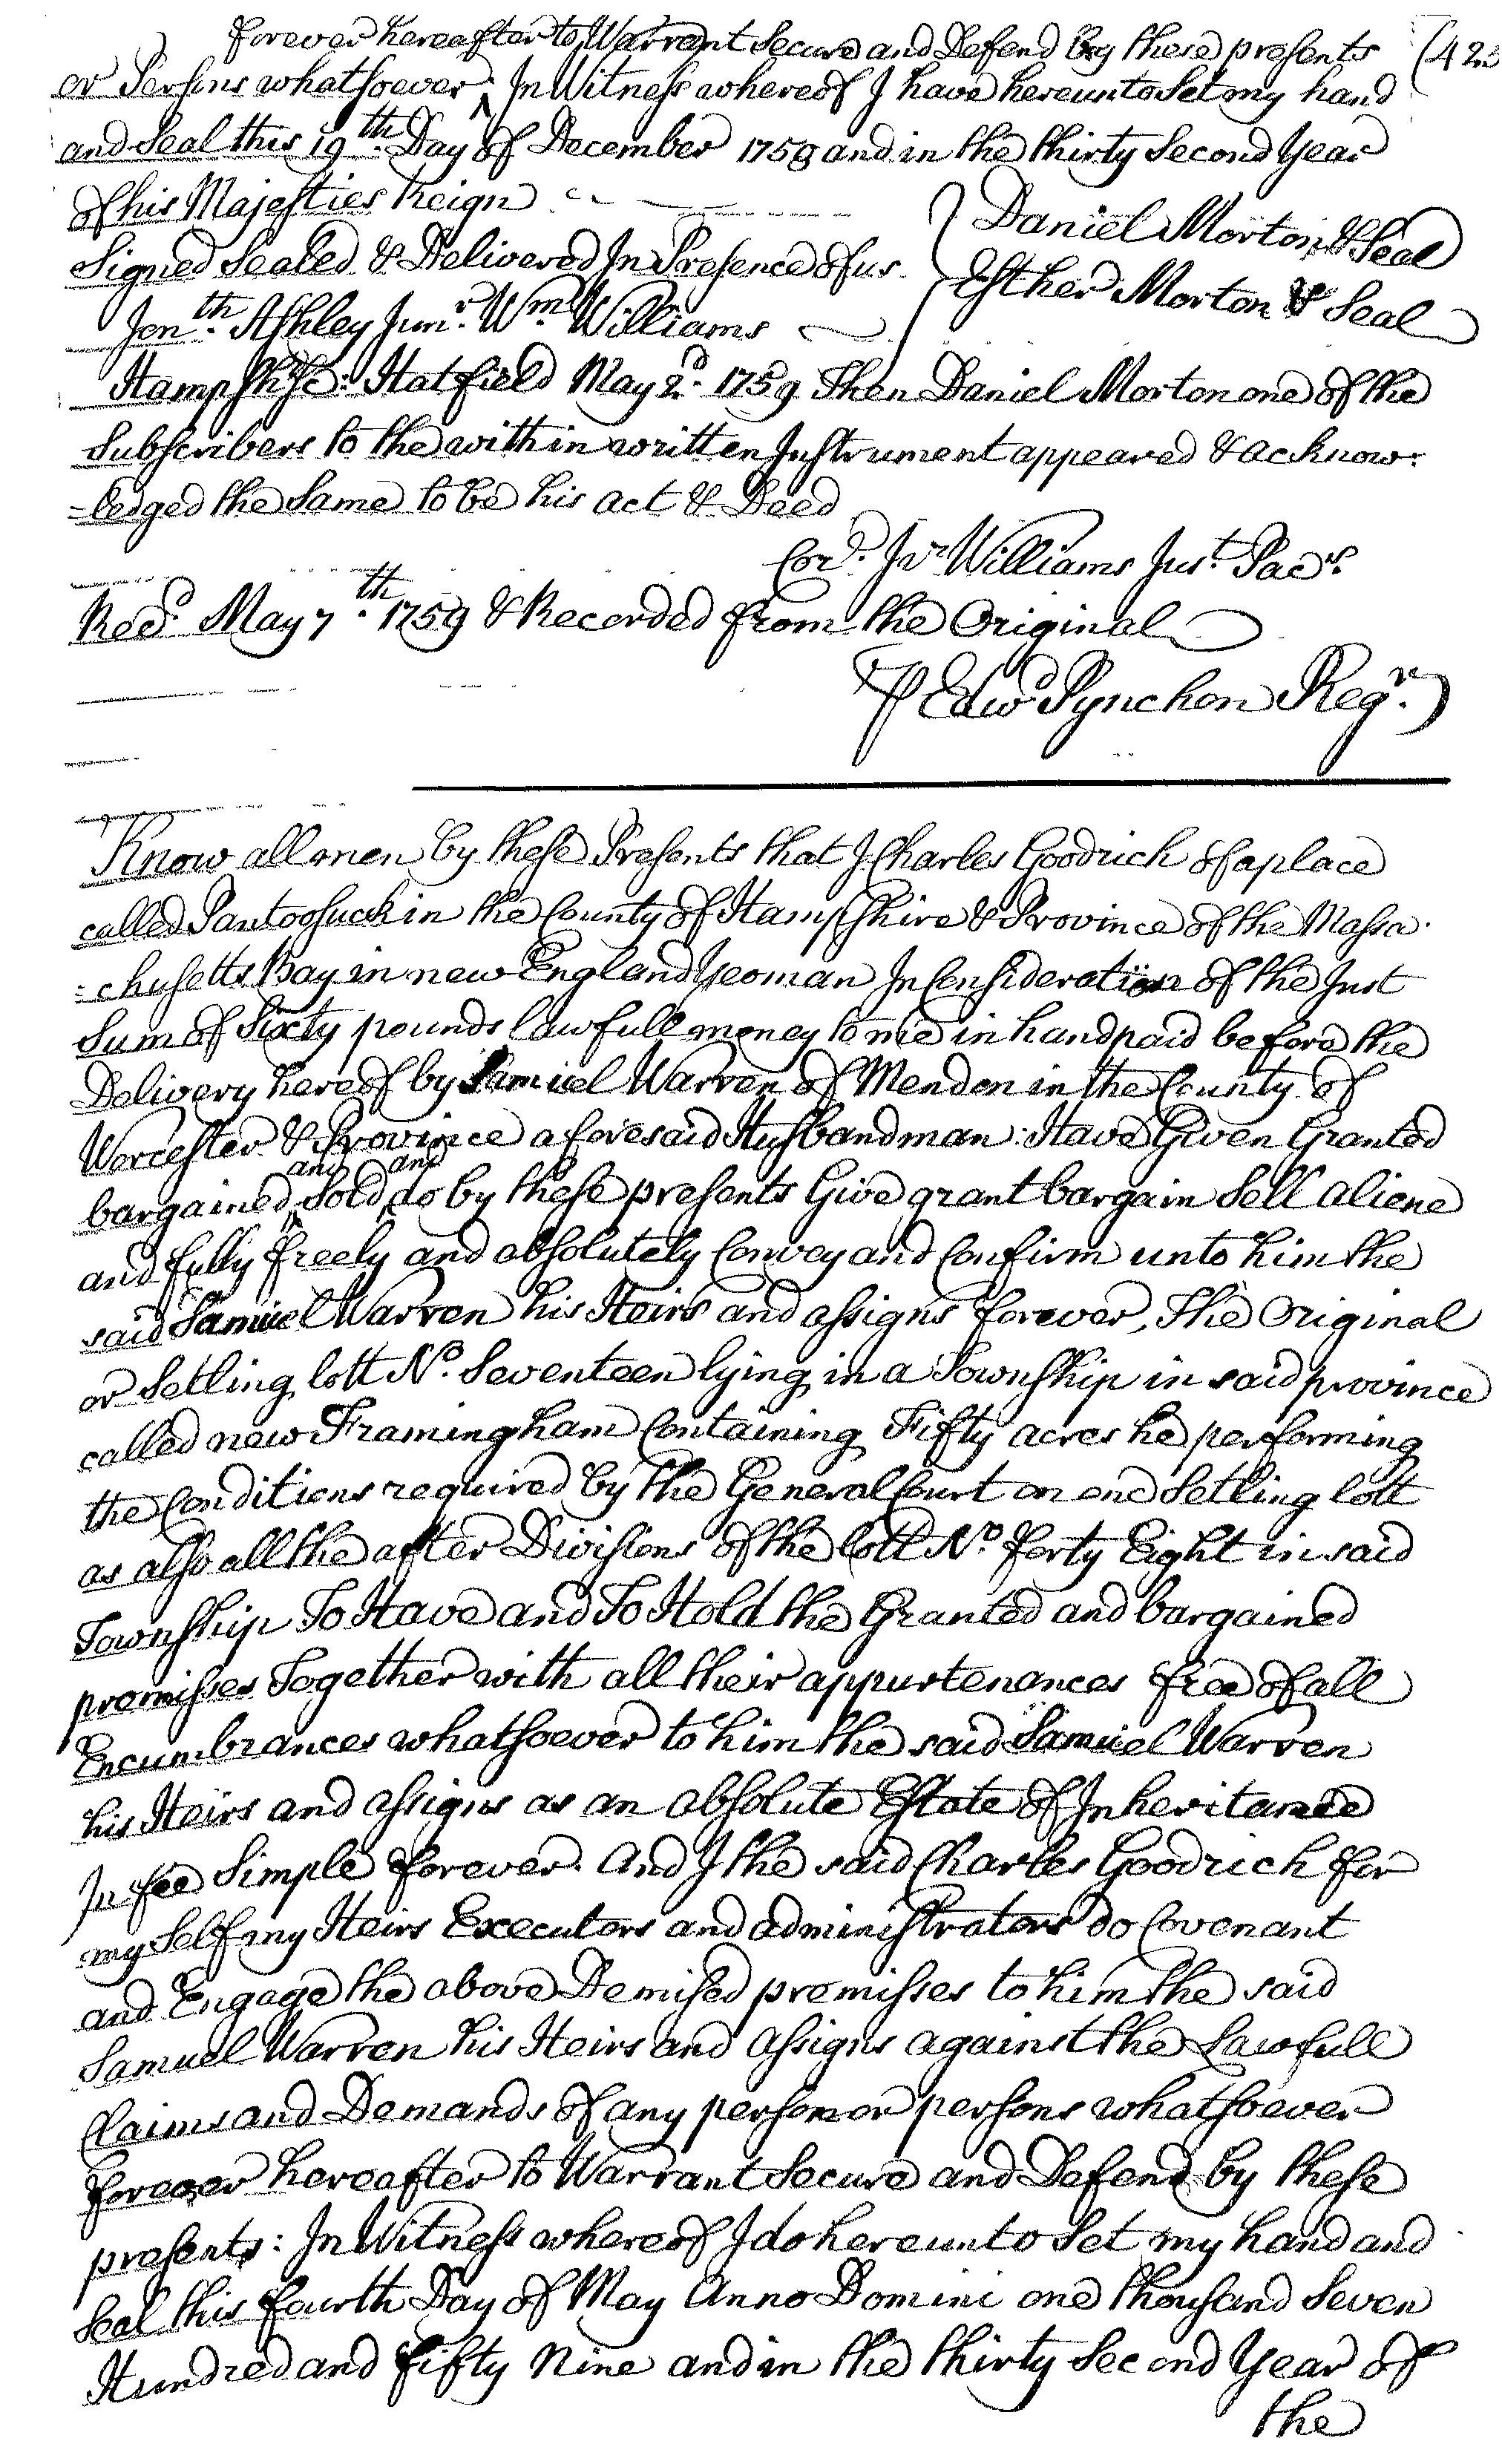 forever hereafter to Warrant Secure and Defend by these presents (423
or Persons whatsoever ‸ In Witness whereof I have hereunto Set my hand
and Seal this 19th. Day of December 1758 and in the thirty Second Year
of his Majesties Reign
Signed Sealed & Delivered In Presence of us
Jonth. Ashley Junr. Wm. Williams
Daniel Morton & Seal
Esther Morton & Seal
Hampshire: Hatfield May 2d. 1759 Then Daniel Morton one of the
Subscribers to the within written Instrument appeared & acknow:
=ledged the Same to be his act & Deed
Cor. Jr Williams Just. Pacs.
Recd. May 7th. 1759 & Recorded from the Original
⅌ Edwd Pynchon Regr.
Know all men by these Presents that I Charles Goodrich of a place
called Pantoosuck in the County of Hampshire & Province of the Massa
=chusetts Bay in new England Yeoman In Consideration of the Just
Sum of Sixty pounds lawfull money to me in hand paid before the
Delivery hereof by Samuel Warren of Mendon in the County of
Worcester & Province aforesaid Husbandman: Have Given Granted
and and
bargained ‸ Sold ‸ do by these presents Give grant bargain Sell aliene
and fully freely and absolutely Convey and Confirm unto him the
said Samuel Warren his Heirs and assigns forever, The Original
or Setling lott No. Seventeen lying in a Township in said province
called new Framingham Containing Fifty acres he performing
the Conditions required by the General Court on one Setling lott
as also all the after Divisions of the lott No. forty Eight in said
Township To Have and To Hold the Granted and bargained
premisses Together with all their appurtenances free of all
Encumbrances whatsoever to him the said Samuel Warren
his Heirs and assigns as an absolute Estate of Inheritance
In fee Simple forever. And I the said Charles Goodrich for
my Self my Heirs Executors and administrators do Covenant
and Engage the above Demised premisses to him the said
Samuel Warren his Heirs and assigns against the Lawfull
Claims and Demands of any person or persons whatsoever
forever hereafter to Warrant Secure and Defend by these
presents: In Witness whereof I do hereunto Set my hand and
Seal this fourth Day of May Anno Domini one thousand Seven
Hundred and fifty Nine and in the thirty Second Year of
the